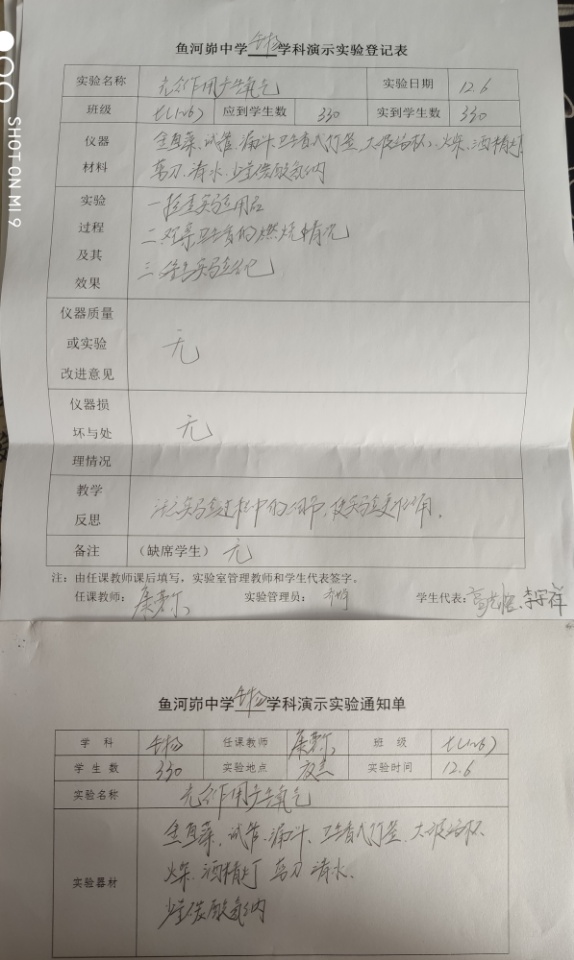 SHOT ON MI 9
鱼河峁中学生物学科演示实验登记表
实验名称 光合作用产生氧气 实验日期 12.6
班级 七(1~6) 应到学生数 330 实到学生数 330
仪器 金鱼藻、试管、漏斗、卫生香、大玻璃杯、火柴、酒精灯
材料 剪刀、清水、少量碳酸氢钠
实验 一检查实验用品
过程 二观察卫生香的燃烧情况
及其 三
效果
仪器质量
或实验 无
改进意见
仪器损
坏与处 无
理情况
教学
反思 注意实验过程中的细节,使实验
备注 (缺席学生) 无
注:由任课教师课后填写,实验室管理教师和学生代表签字。
任课教师: 实验管理员: 学生代表: 李宇祥
鱼河峁中学生物学科演示实验通知单
学科 生物 任课教师 班级 七(1~6)
学生数 330 实验地点 实验时间 12.6
实验名称 光合作用产生氧气
金鱼藻、试管、漏斗、卫生香、大玻璃杯
火柴、酒精灯 剪刀 清水、
实验器材
少量碳酸氢钠